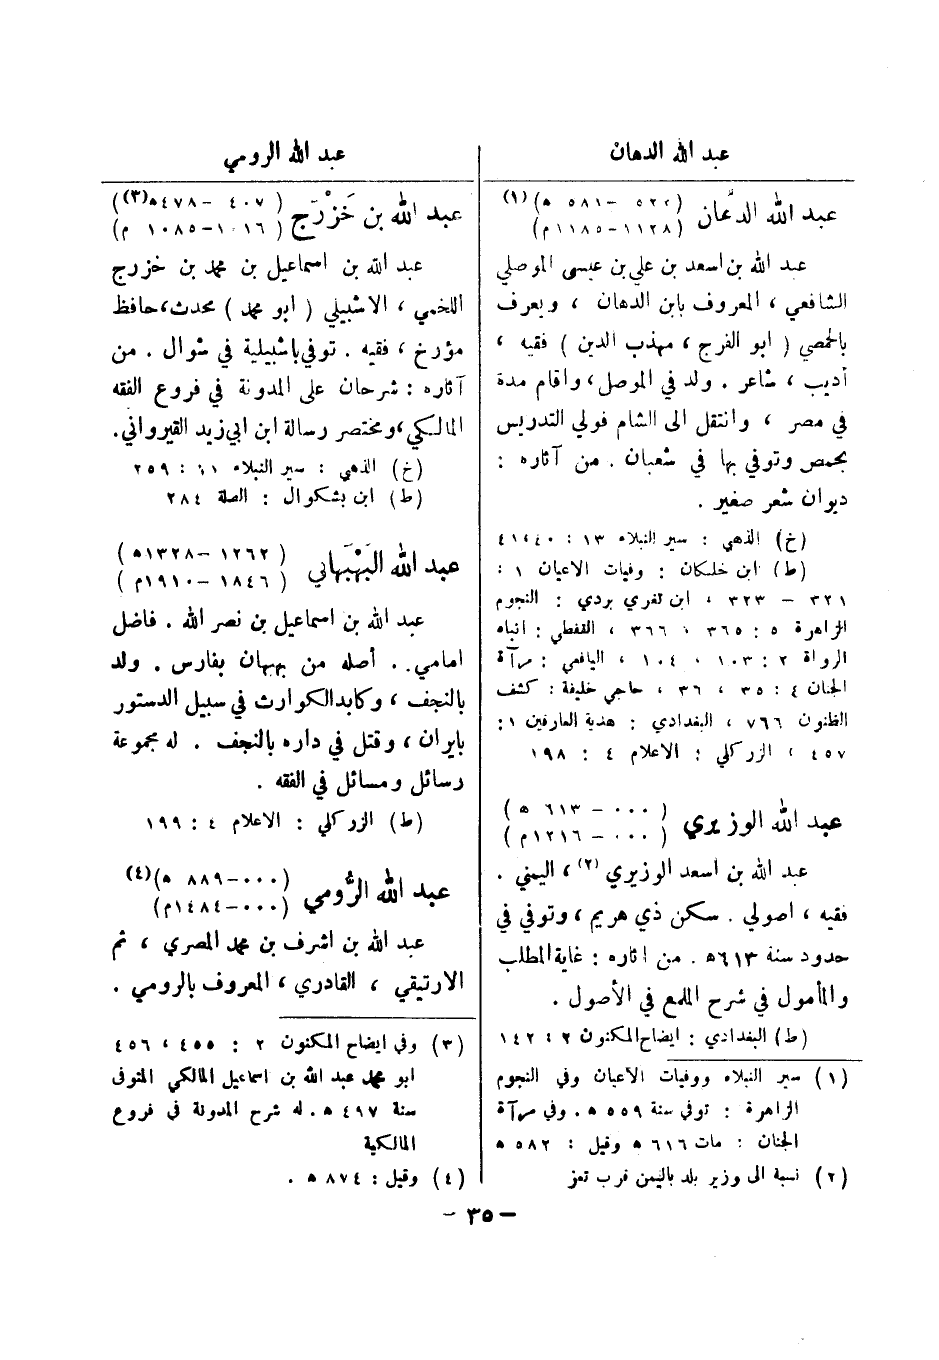 عبد الله الدهان
عبد الله الدهَّان (٥٢٢ – ٥٨١ ه) (١)
(١١٢٨–١١٨٥ م)
عبد الله بن اسعد بن علي بن عيسى الموصلي
الشافعي ، المعروف بابن الدهان ، ويعرف
بالحمصي ( ابو الفرج ، مهذب الدين ) فقيه ،
أديب ، شاعر . ولد في الموصل ، واقام مدة
في مصر ، وانتقل الى الشام فولي التدريس
بحمص وتوفي بها في شعبان . من آثاره :
ديوان شعر صغير .
(خ) الذهبي : سير النبلاء ١٣ :
(ط) ابن خلكان : وفيات الاعيان ١ :
٣٢١ – ٣٢٣ ، ابن تغري بردي : النجوم
الزاهرة ٥ : ٣٦٥ ، ٣٦٦ ، القفطي : انباه
الرواة ٢ : ١٠٣ ، ١٠٤ ، اليافعي : مرآة
الجنان ٤ : ٣٥ ، ٣٦ ، حاجي خليفة : كشف
الظنون ٧٦٦ ، البغدادي : هدية العارفين ١ :
٤٥٧ ، الزركلي : الاعلام ٤ : ١٩٨
عبد الله الوزيري (٠٠٠ – ٦١٣ ه )
(٠٠٠ – ١٢١٦ م)
عبد الله بن اسعد الوزيري (٢) ، اليمني .
فقيه ، اصولي . سكن ذي هريم ، وتوفي في
حدود سنة ٦١٣ ه . من اثاره : غاية المطلب
والمأمول في شرح اللمع في الأصول .
(ط) البغدادي : ايضاح المكنون ٢ : ١٤٢
(١) سير النبلاء ووفيات الاعيان وفي النجوم
الزاهرة : توفي سنة ٥٥٩ ه . وفي مرآة
الجنان : مات ٦١٦ ه وقيل : ٥٨٢ ه
(٢) نسبة الى وزير بلد باليمن قرب تعز
عبد الله الرومي
عبد الله بن خَزْرَج (٤٠٧ – ٤٧٨ ه) (٣)
(١٠١٦–١٠٨٥ م)
عبد الله بن اسماعيل بن محمد بن خزرج
اللخمي ، الاشبيلي ( ابو محمد ) محدث ، حافظ
مؤرخ ، فقيه . توفي باشبيلية في شوال . من
آثاره : شرحان على المدونة في فروع الفقه
المالكي ، ومختصر رسالة ابن ابي زيد القيرواني .
(خ) الذهبي : سير النبلاء ١١ : ٢٥٩
(ط) ابن بشكوال : الصلة ٢٨٤
عبد الله البَهْبَهاني (١٢٦٢ – ١٣٢٨ ه)
(١٨٤٦ – ١٩١٠ م)
عبد الله بن اسماعيل بن نصر الله . فاضل
امامي . أصله من بهبهان بفارس . ولد
بالنجف ، وكابد الكوارث في سبيل الدستور
بايران ، وقتل في داره بالنجف . له مجموعة
رسائل ومسائل في الفقه .
(ط) الزركلي : الاعلام ٤ : ١٩٩
عبد الله الرُّومي (٠٠٠–٨٨٩ ه) (٤)
(٠٠٠–١٤٨٤ م)
عبد الله بن اشرف بن محمد المصري ، ثم
الارتيقي ، القادري ، المعروف بالرومي .
(٣) وفي ايضاح المكنون ٢ : ٤٥٥ ، ٤٥٦
ابو محمد عبد الله بن اسماعيل المالكي المتوفى
سنة ٤٩٧ ه . له شرح المدونة في فروع
المالكية
(٤) وقيل : ٨٧٤ ه .
– ٣٥ –